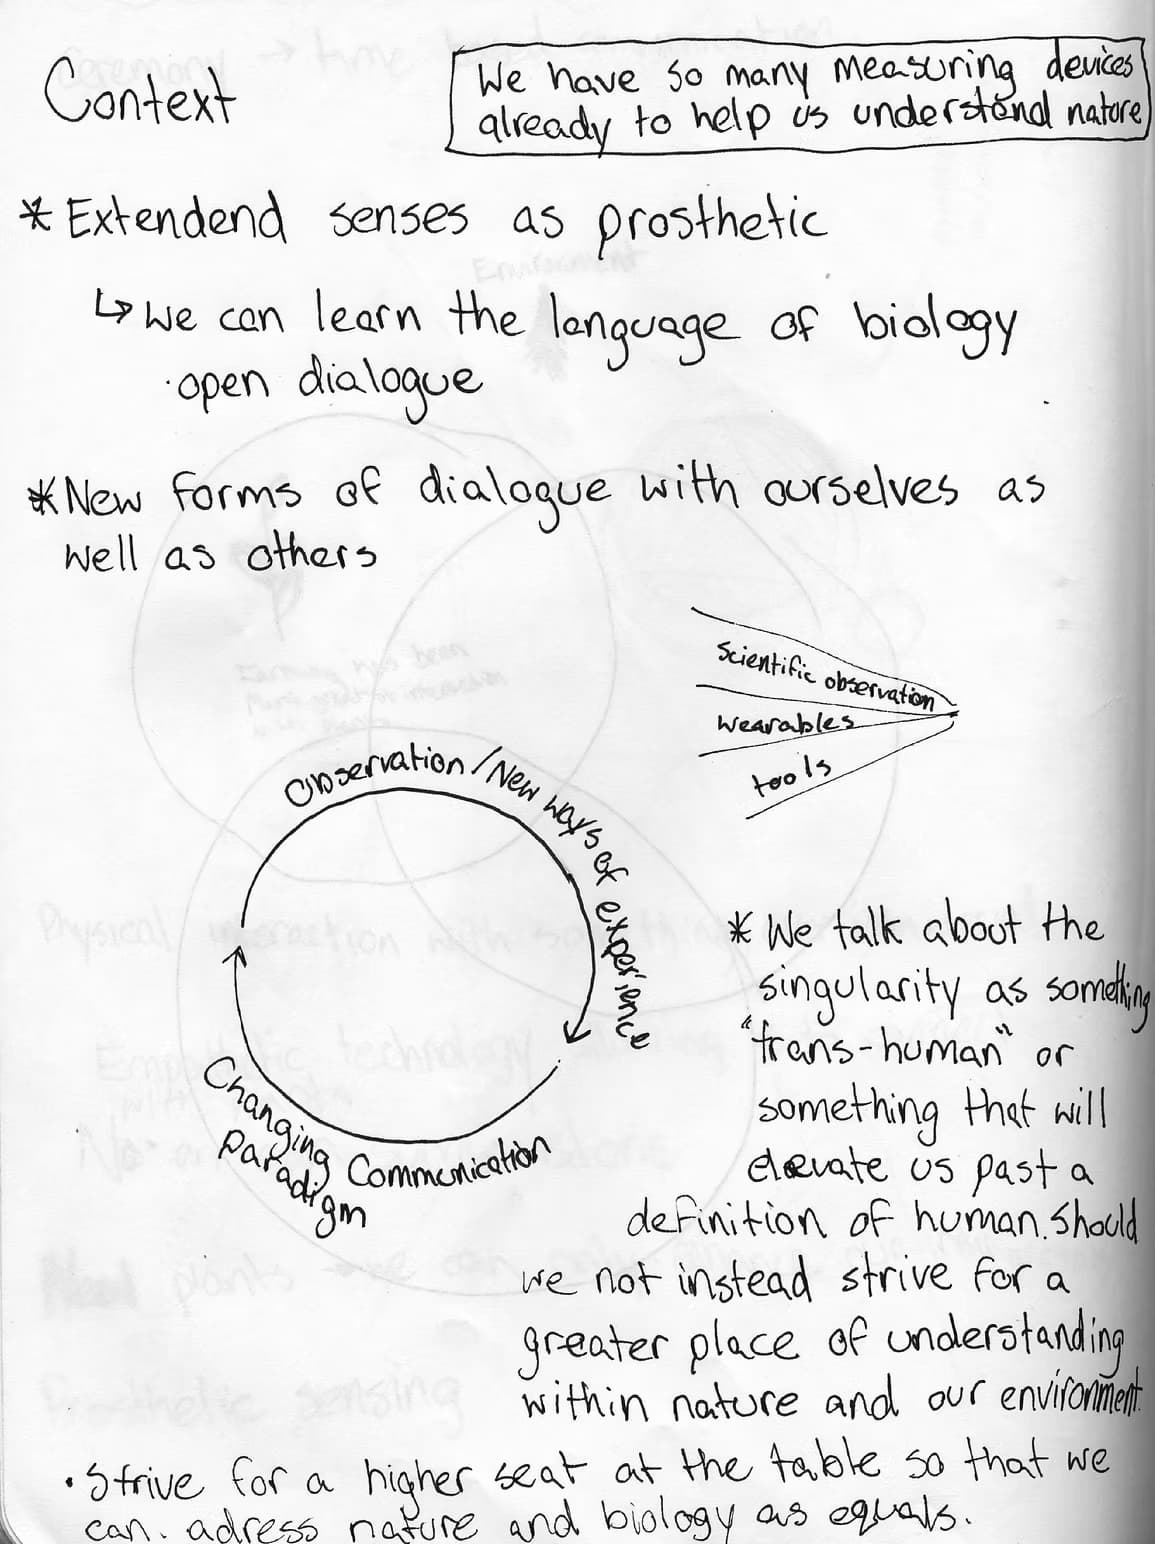 Context
We have so many measuring devices
already to help us understand nature
* Extendend senses as prosthetic
↳ We can learn the language of biology
· open dialogue
* New forms of dialogue with ourselves as
well as others
Scientific observation
Wearables
tools
Observation / New ways of experience
Changing
Paradigm
Communication
* We talk about the
singularity as something
"trans-human" or
something that will
elevate us past a
definition of human. Should
we not instead strive for a
greater place of understanding
within nature and our environment.
· Strive for a higher seat at the table so that we
can. adress nature and biology as equals.
Ceremony → time
Environment
Farming has been
Physical interaction with
technology
plants
sensing